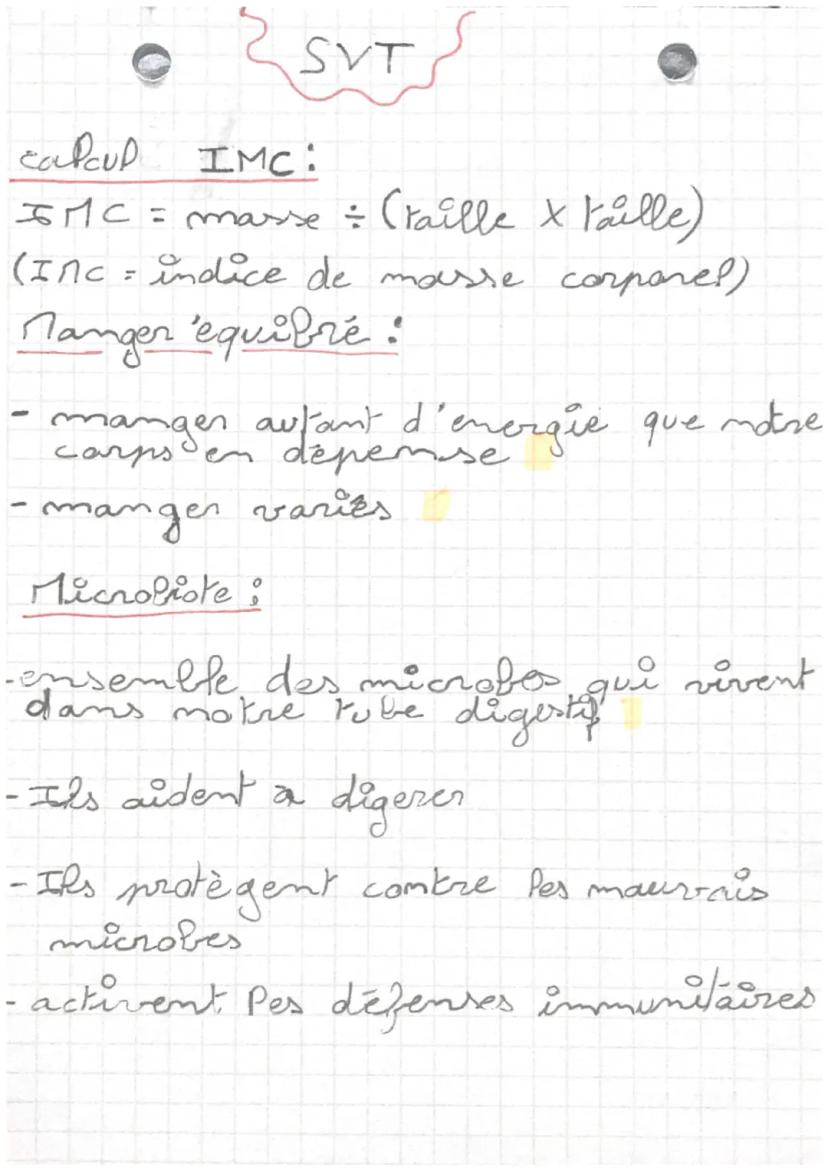 SVT
calcul IMC :
IMC = masse ÷ (taille x taille)
(IMC = indice de masse corporel)
Manger équilbré :
- manger autant d'énergie que notre
corps en dépense
- manger variés
Microbiote :
- ensemble des microbes qui vivent
dans notre tube digestif
- Ils aident a digerer
- Ils protègent contre les mauvais
microbes
- activent les défenses immunitaires